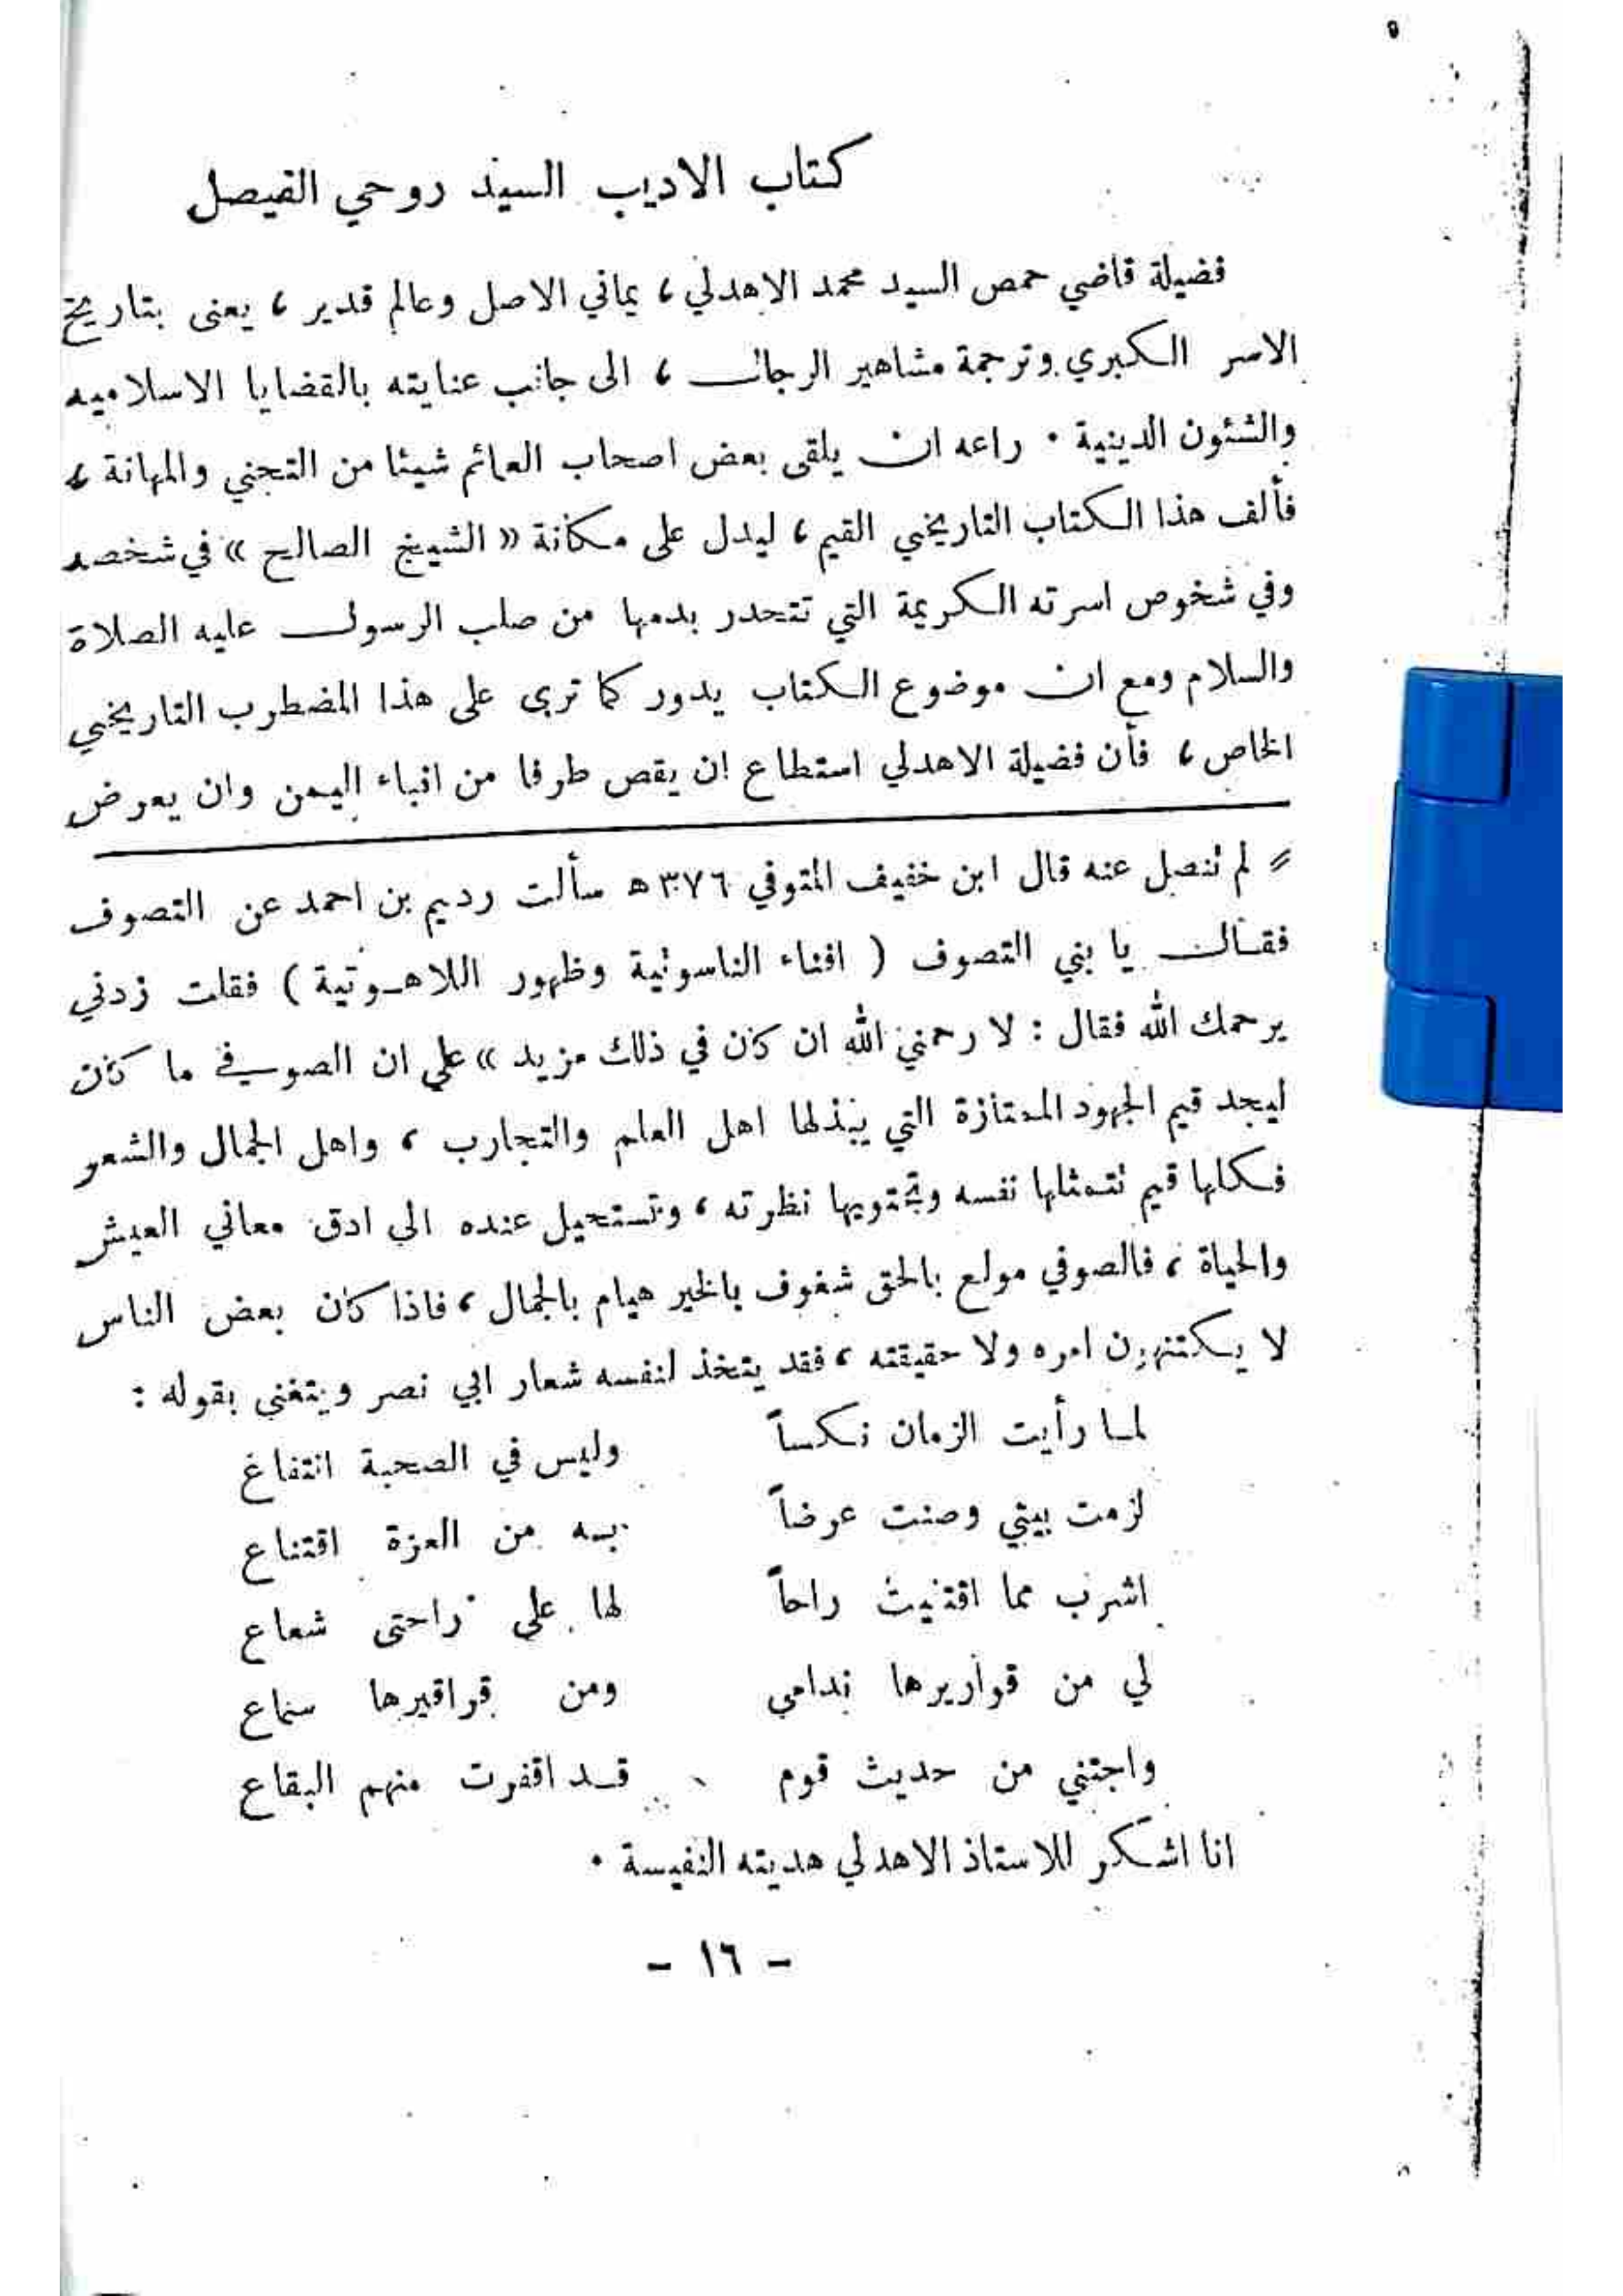 كتاب الاديب السيد روحي الفيصل
فضيلة قاضي حمص السيد محمد الاهدلي ، يماني الاصل وعالم قدير ، يعنى بتاريخ
الاسر الكبري وترجمة مشاهير الرجال ، الى جانب عنايته بالقضايا الاسلاميه
والشئون الدينية . راعه ان يلقى بعض اصحاب العمائم شيئا من التجني والمهانة ،
فألف هذا الكتاب التاريخي القيم ، ليدل على مكانة « الشيخ الصالح » في شخصه
وفي شخوص اسرته الكريمة التي تتحدر بدمها من صلب الرسول عليه الصلاة
والسلام ومع ان موضوع الكتاب يدور كما ترى على هذا المضطرب التاريخي
الخاص ، فأن فضيلة الاهدلي استطاع ان يقص طرفا من انباء اليمن وان يعرض
لم تنصل عنه قال ابن خفيف المتوفي ٣٧٦ ه سألت رديم بن احمد عن التصوف
فقال يا بني التصوف ( افناء الناسوتية وظهور اللاهوتية ) فقلت زدني
يرحمك الله فقال : لا رحمني الله ان كان في ذلك مزيد » على ان الصوفي ما كان
ليجد قيم الجهود الممتازة التي يبذلها اهل العلم والتجارب ، واهل الجمال والشعر
فكلها قيم تتمثلها نفسه وتحتويها نظرته ، وتستحيل عنده الى ادق معاني العيش
والحياة ، فالصوفي مولع بالحق شغوف بالخير هيام بالجمال ، فاذا كان بعض الناس
لا يكتنهون امره ولا حقيقته ، فقد يتخذ لنفسه شعار ابي نصر ويتغنى بقوله :
لما رأيت الزمان نكساً وليس في الصحبة انتفاع
لزمت بيتي وصنت عرضاً به من العزة اقتناع
اشرب مما اقتنيت راحاً لها على راحتى شعاع
لي من قواريرها ندامي ومن قراقيرها سماع
واجتني من حديث قوم قد اقفرت منهم البقاع
انا اشكر للاستاذ الاهدلي هديته النفيسة .
- ١٦ -